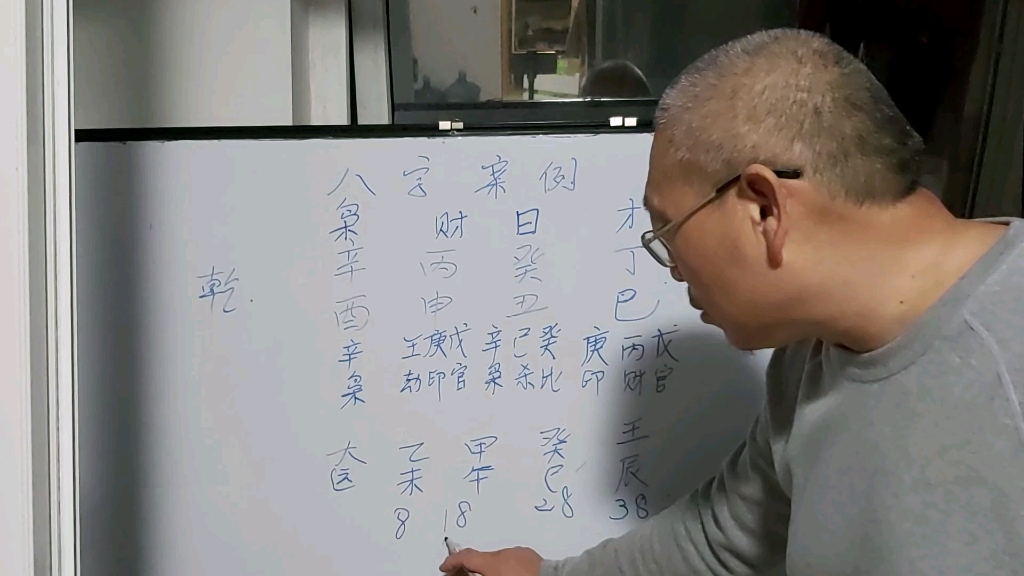 八字案例
枭 财 日 才
乾 辛 丙 癸 丁
酉 申 丑 巳
辛 壬庚戊 辛己癸 庚丙戊
枭 劫印官 枭杀比 印财官
大 乙 甲 癸 壬
未 午 巳 辰
8 18 28 38